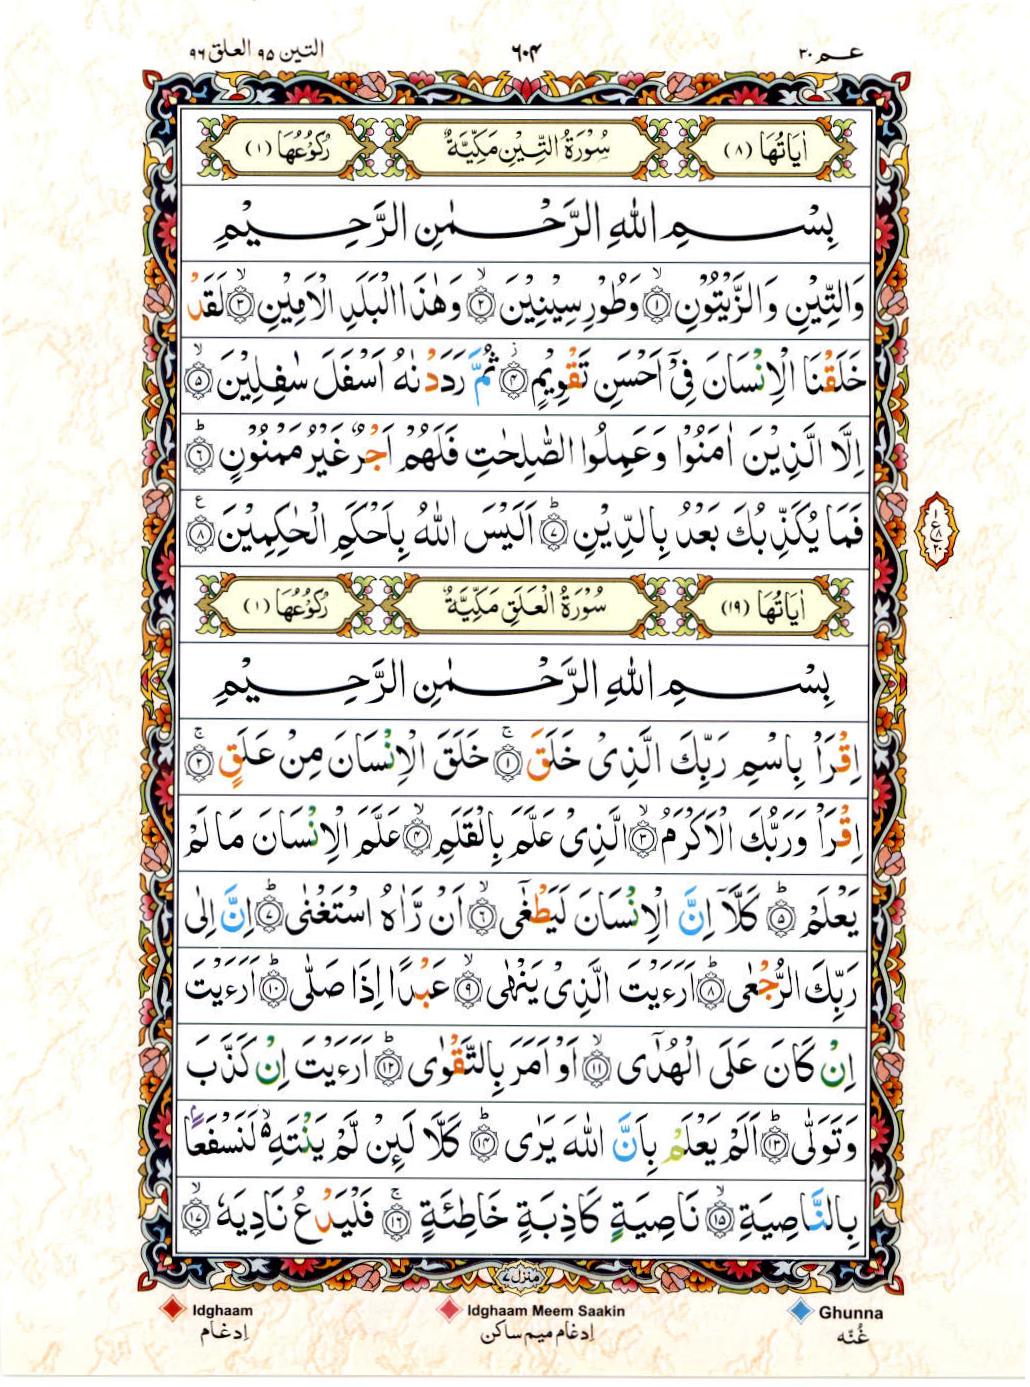 عـــم ٣٠
٦٠٤
التين ٩٥ العلق ٩٦
اٰيَاتُهَا (٨)
سُوْرَةُ التِّيْنِ مَكِّيَّةٌ
رُكُوْعُهَا (١)
بِسْمِ اللّٰهِ الرَّحْمٰنِ الرَّحِيْمِ
وَالتِّيْنِ وَالزَّيْتُوْنِ ۙ﴿١﴾ وَطُوْرِ سِيْنِيْنَ ۙ﴿٢﴾ وَهٰذَا الْبَلَدِ الْاَمِيْنِ ۙ﴿٣﴾ لَقَدْ
خَلَقْنَا الْاِنْسَانَ فِىْٓ اَحْسَنِ تَقْوِيْمٍ ۡ﴿٤﴾ ثُمَّ رَدَدْنٰهُ اَسْفَلَ سٰفِلِيْنَ ۙ﴿٥﴾
اِلَّا الَّذِيْنَ اٰمَنُوْا وَعَمِلُوا الصّٰلِحٰتِ فَلَهُمْ اَجْرٌ غَيْرُ مَمْنُوْنٍ ؕ﴿٦﴾
فَمَا يُكَذِّبُكَ بَعْدُ بِالدِّيْنِ ؕ﴿٧﴾ اَلَيْسَ اللّٰهُ بِاَحْكَمِ الْحٰكِمِيْنَ ࣖ﴿٨﴾
١
ع
٨
٢٠
اٰيَاتُهَا (١٩)
سُوْرَةُ الْعَلَقِ مَكِّيَّةٌ
رُكُوْعُهَا (١)
بِسْمِ اللّٰهِ الرَّحْمٰنِ الرَّحِيْمِ
اِقْرَاْ بِاسْمِ رَبِّكَ الَّذِىْ خَلَقَ ۚ﴿١﴾ خَلَقَ الْاِنْسَانَ مِنْ عَلَقٍ ۚ﴿٢﴾
اِقْرَاْ وَرَبُّكَ الْاَكْرَمُ ۙ﴿٣﴾ الَّذِىْ عَلَّمَ بِالْقَلَمِ ۙ﴿٤﴾ عَلَّمَ الْاِنْسَانَ مَا لَمْ
يَعْلَمْ ؕ﴿٥﴾ كَلَّاۤ اِنَّ الْاِنْسَانَ لَيَطْغٰٓى ۙ﴿٦﴾ اَنْ رَّاٰهُ اسْتَغْنٰى ؕ﴿٧﴾ اِنَّ اِلٰى
رَبِّكَ الرُّجْعٰى ؕ﴿٨﴾ اَرَءَيْتَ الَّذِىْ يَنْهٰى ۙ﴿٩﴾ عَبْدًا اِذَا صَلّٰى ؕ﴿١٠﴾ اَرَءَيْتَ
اِنْ كَانَ عَلَى الْهُدٰٓى ۙ﴿١١﴾ اَوْ اَمَرَ بِالتَّقْوٰى ؕ﴿١٢﴾ اَرَءَيْتَ اِنْ كَذَّبَ
وَتَوَلّٰى ؕ﴿١٣﴾ اَلَمْ يَعْلَمْ بِاَنَّ اللّٰهَ يَرٰى ؕ﴿١٤﴾ كَلَّا لَئِنْ لَّمْ يَنْتَهِ ۙ۬ لَنَسْفَعًۢا
بِالنَّاصِيَةِ ۙ﴿١٥﴾ نَاصِيَةٍ كَاذِبَةٍ خَاطِئَةٍ ۚ﴿١٦﴾ فَلْيَدْعُ نَادِيَهٗ ۙ﴿١٧﴾
منزل ٧
Idghaam
Idghaam Meem Saakin
Ghunna
اِدغام
اِدغام میم ساکن
غُنّه